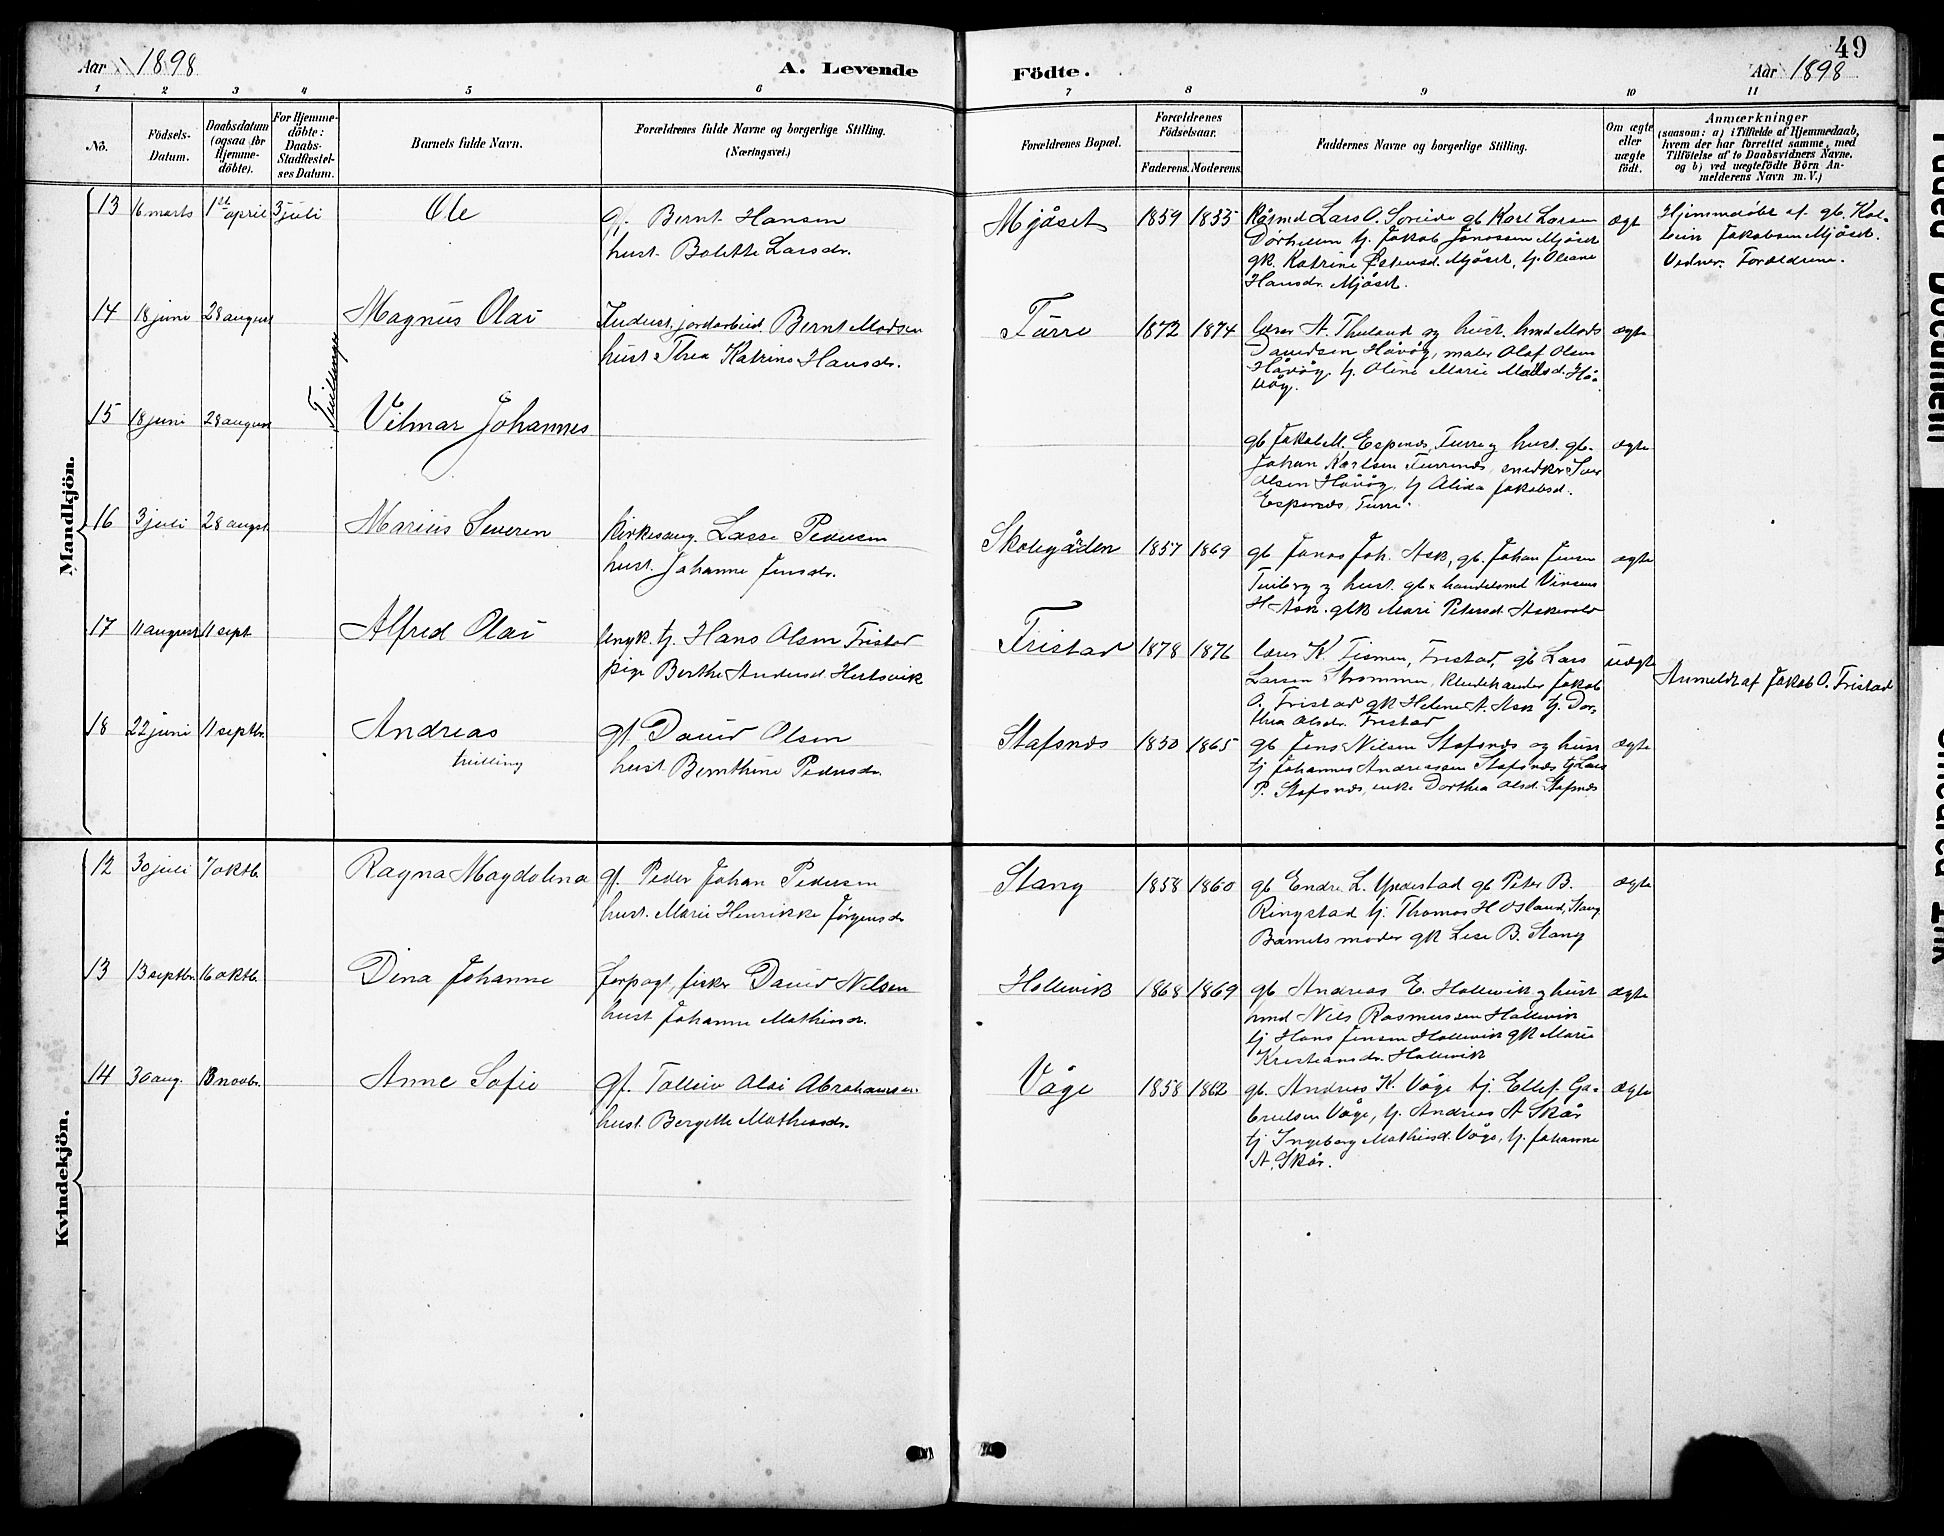 49
Aar 1898
A. Levende
Födte.
Aar 1898
1 2 3 4 5 6 7 8 9 10 11
Nö.
Födsels-
Datum.
Daabsdatum
(ogsaa for
Hjemme-
döbte).
For Hjemme-
döbte:
Daabs-
Stadfæstel-
ses Datum.
Barnets fulde Navn.
Forældrenes fulde Navne og borgerlige Stilling.
(Næringsvei.)
Forældrenes Bopæl.
Forældrenes
Födselsaar.
Faderens. Moderens.
Faddernes Navne og borgerlige Stilling.
Om ægte
eller
uægte
födt.
Anmærkninger
(saasom: a) i Tilfælde af Hjemmedaab,
hvem der har forrettet samme, med
Tilföielse af to Daabsvidners Navne,
og b) ved uægtefödte Börn An-
melderens Navn m. V.)
Mandkjön.
13 6 marts 1ste april 3 juli Ole
gf. Bernt Hansen
hust. Bolette Larsdr.
Mjåset 1859 1855
Lars O. Soreide gb Karl Larsen
tj. Jakob Jonassen Mjåset
gk. Katrine Mjåset, tj. Oleane
Hansdr. Mjåset.
ægt
Hjemmedøbt af gb. Kol-
bein Jakobsen Mjåset.
Vidner: Forældrene.
14 18 juni 28 august Magnus Olai
jordarbeid. Bernt Madsen
hust. Thea Katrine Hansdr.
Turre 1872 1874
lærer A. Thuland og hust. hmd Mads
Davidsen Håvåg, maler Olaf Olsen
Håvåg, tj. Oline Marie Madsd. Hå-
våg.
ægte
Tvillinger
15 18 juni 28 august Vilmar Johannes
gb Jakob M. Espenæs, Turre og hust. gb.
Johan Karlsen Turrenæs, snedker Iver
Olsen Håvåg, tj Alida Jakobsd.
Espenæs, Turre.
ægte
16 3 juli 28 augst. Marius Severin
kirkesang. Lasse Pedersen
hust. Johanne Jensdr.
Skolegården 1857 1869
gb Jonas Joh. Ask, gb. Johan Jensen
Tviberg og hust. gb & handelsmd Vinsens
H. Ask. gbk Mari Petersd. Askvold
ægte
17 11 august 11 sept. Alfred Olai
ungk. tj. Hans Olsen Tristad
pige Berthe Andersd. Hertsvik
Tristad 1878 1876
lærer K. Tismen, Tristad, gb Lars
Larsen Strommen, kludehandler Jakob
O. Tristad gk Helene A. Ask tj. Dor-
thea Olsdr. Tristad
uægte
Anmeldt af Jakob O. Tristad
18 22 juni 11 septbr. Andreas
tvilling
gf David Olsen
hust. Bernthine Pedersdr.
Stafsnæs 1850 1865
gb Jens Nilsen Stafsnæs og hust
tj Johannes Andreassen Stafsnæs tj Lars
P. Stafsnæs, enke Dorthea Olsd. Stafsnæs
ægte
Kvindekjön.
12 30 juli 7 oktb. Ragna Magdalena
gf. Peder Johan Pedersen
hust. Marie Henrikke Jørgensdr
Stang 1858 1860
gb Endre L. Yndestad gb Peter B.
Ringstad tj. Thomas H Osland, Stang
Barnets moder gk Lise B. Stang
ægte
13 13 septbr. 16 oktb. Dina Johanne
forpagt., fisker David Nilsen
hust Johanne Mathiasdr.
Hollevik 1868 1869
gb. Andreas E. Hollevik og hust
hmd Nils Rasmussen Hollevik
tj Hans Jensen Hollevik gk Marie
Kristiansdr. Hollevik
ægte
14 30 aug. 13 novbr. Anne Sofie
gf. Tolleiv Olai Abrahamsen.
hust. Bergette Mathiasdr.
Våge 1858 1862
gb. Andreas K. Våge tj. Ellef. Ga-
brielsen Våge, tj. Andreas A Skår
tj Ingeborg Mathiasd. Våge, tj. Johanne
A. Skår.
ægte